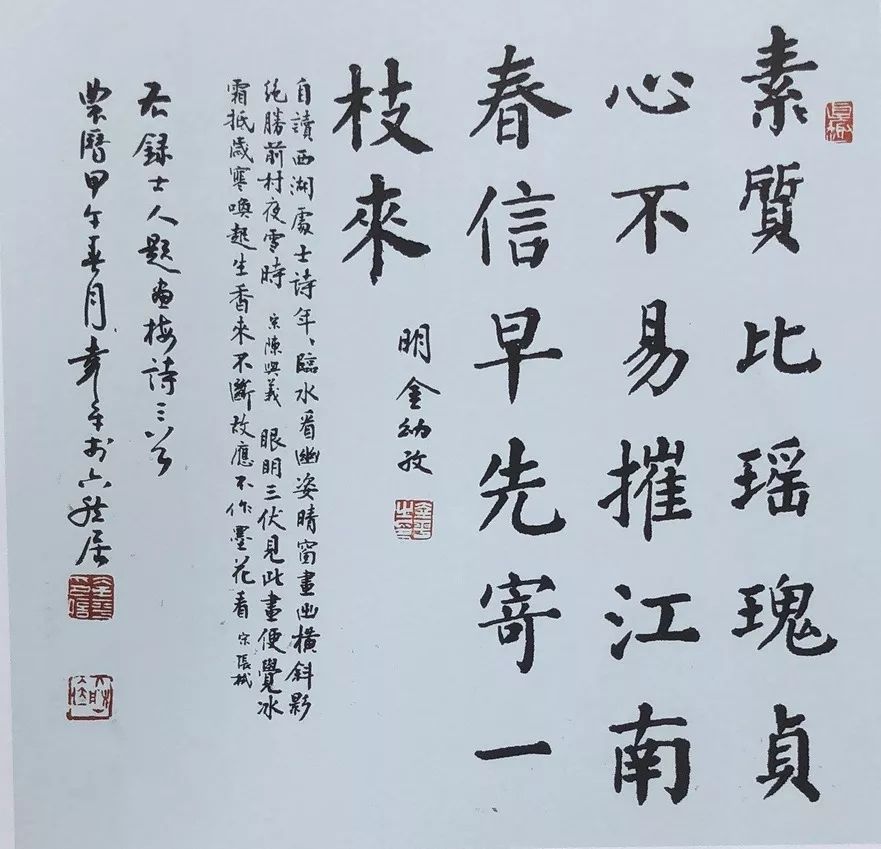 素質比瑶瑰貞
心不易摧江南
春信早先寄一
枝來
明 金幼孜
自讀西湖處士詩年、臨水看幽姿晴窗畫出橫斜影
絶勝前村夜雪時 宋陳與義 眼明三伏見此畫便覺冰
霜抵歲寒喚起生香來不斷故應不作墨花看 宋張栻
右錄士人題畫梅詩三首
農曆甲午春月 於 居